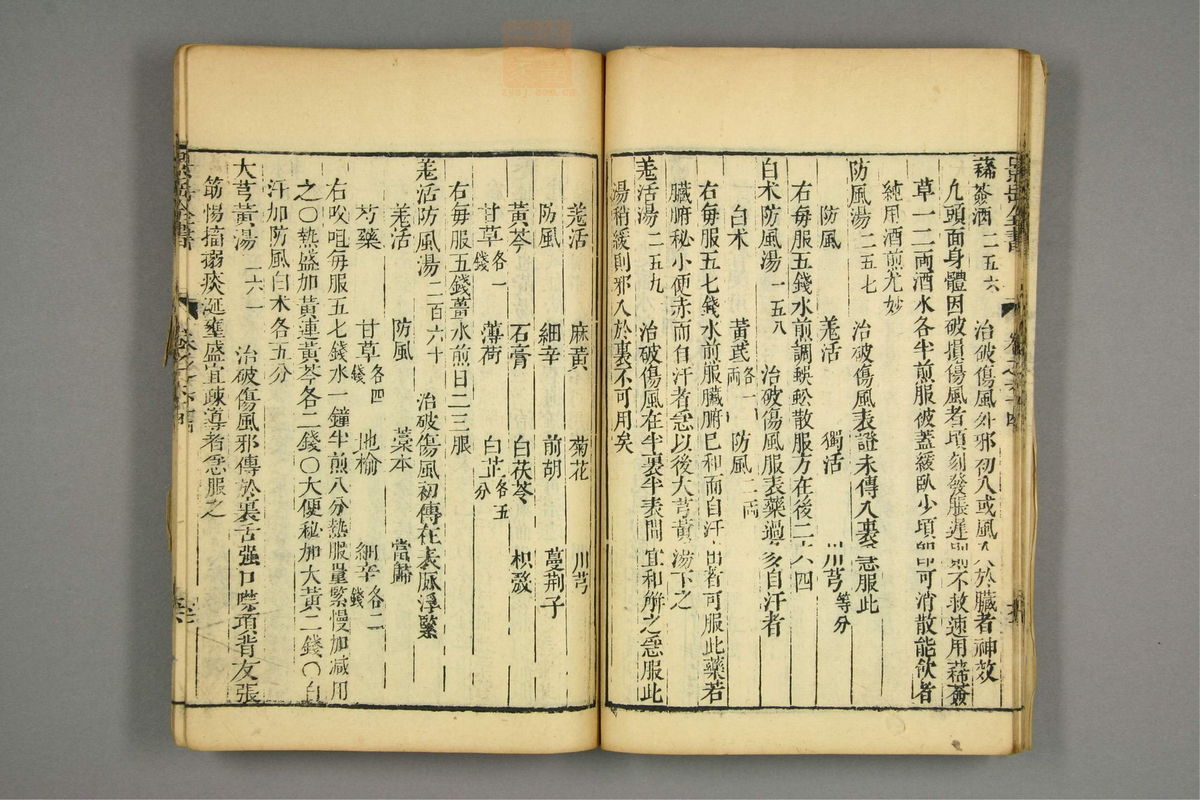 豨薟酒 二五六 治破傷風外邪初入或風入於臟者神效
凢頭面身體因破損傷風者頃刻發脹遲則不救速用豨薟
草一二兩酒水各半煎服被蓋緩臥少頃卽可消散能飲者
純用酒煎尤妙
防風湯 二五七 治破傷風表證未傳入裏急服此
防風 羗活 獨活 川芎等分
右每服五錢水煎調蜈蚣散服方在後二六四
白术防風湯 二五八 治破傷風服表藥過多自汗者
白术 黃芪各一兩 防風二兩
右每服五七錢水煎服臟腑已和而自汗出者可服此藥若
臟腑秘小便赤而自汗者急以後大芎黃湯下之
羗活湯 二五九 治破傷風在半裏半表間宜和解之急服此
湯稍緩則邪入於裏不可用矣
羗活 麻黃 菊花 川芎
防風 細辛 前胡 蔓荆子
黃芩 石膏 白茯苓 枳殼
甘草各一錢 薄荷 白芷各五分
右每服五錢薑水煎日二三服
羗活防風湯 二百六十 治破傷風初傳在表脉浮緊
羗活 防風 藁本 當歸
芍藥 甘草各四錢 地榆 細辛各二錢
右㕮咀每服五七錢水一鐘半煎八分熱服量緊慢加减用
之〇熱盛加黃連黃芩各二錢〇大便秘加大黃二錢〇自
汗加防風白术各五分
大芎黃湯 二六一 治破傷風邪傳於裏舌强口噤項背反張
筋惕搐搦痰涎壅盛宜疎導者急服之
景岳全書
卷之六十四